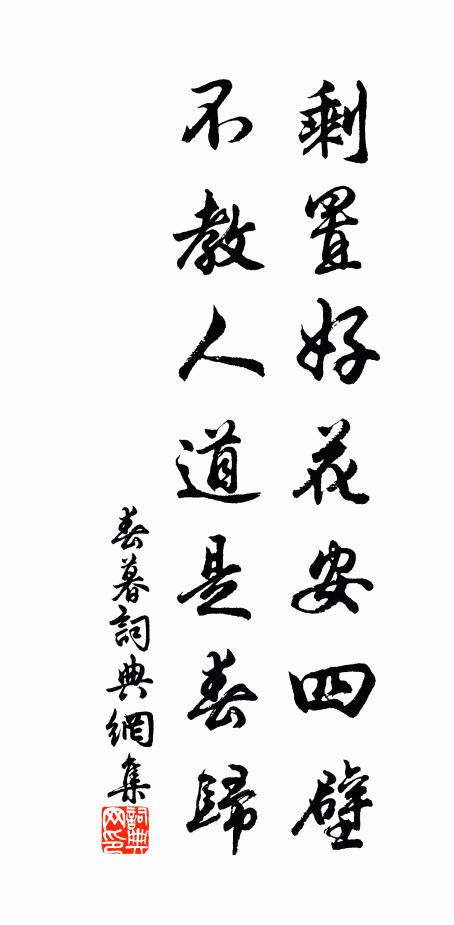 剩置好花安四壁
不教人道是春歸
春暮詞典網集
詞典網印